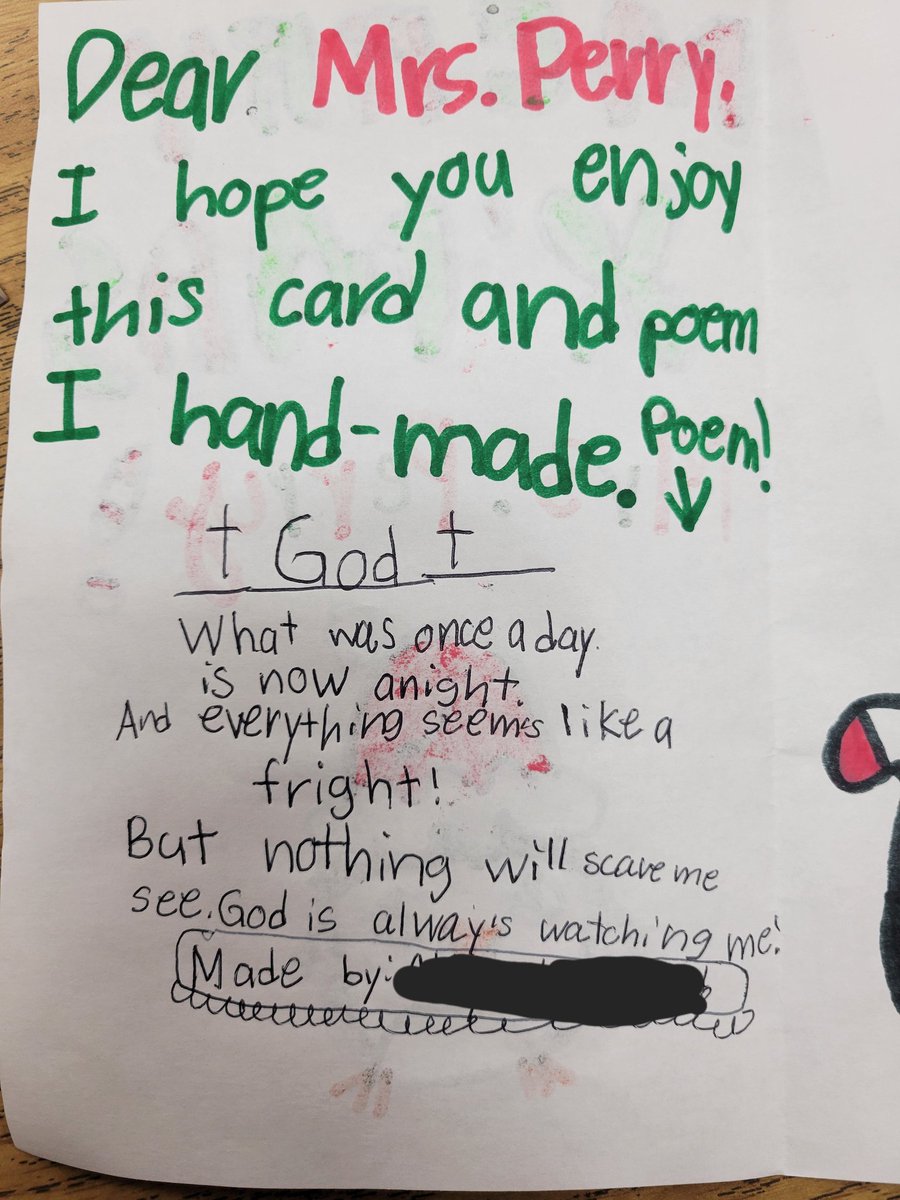 Dear Mrs. Perry.
I hope you enjoy
this card and poem
I hand-made. Poem!
God
What was once a day.
is now a night.
And everything seems like a
fright!
But nothing will scare me
see. God is always watching me!
Made by: